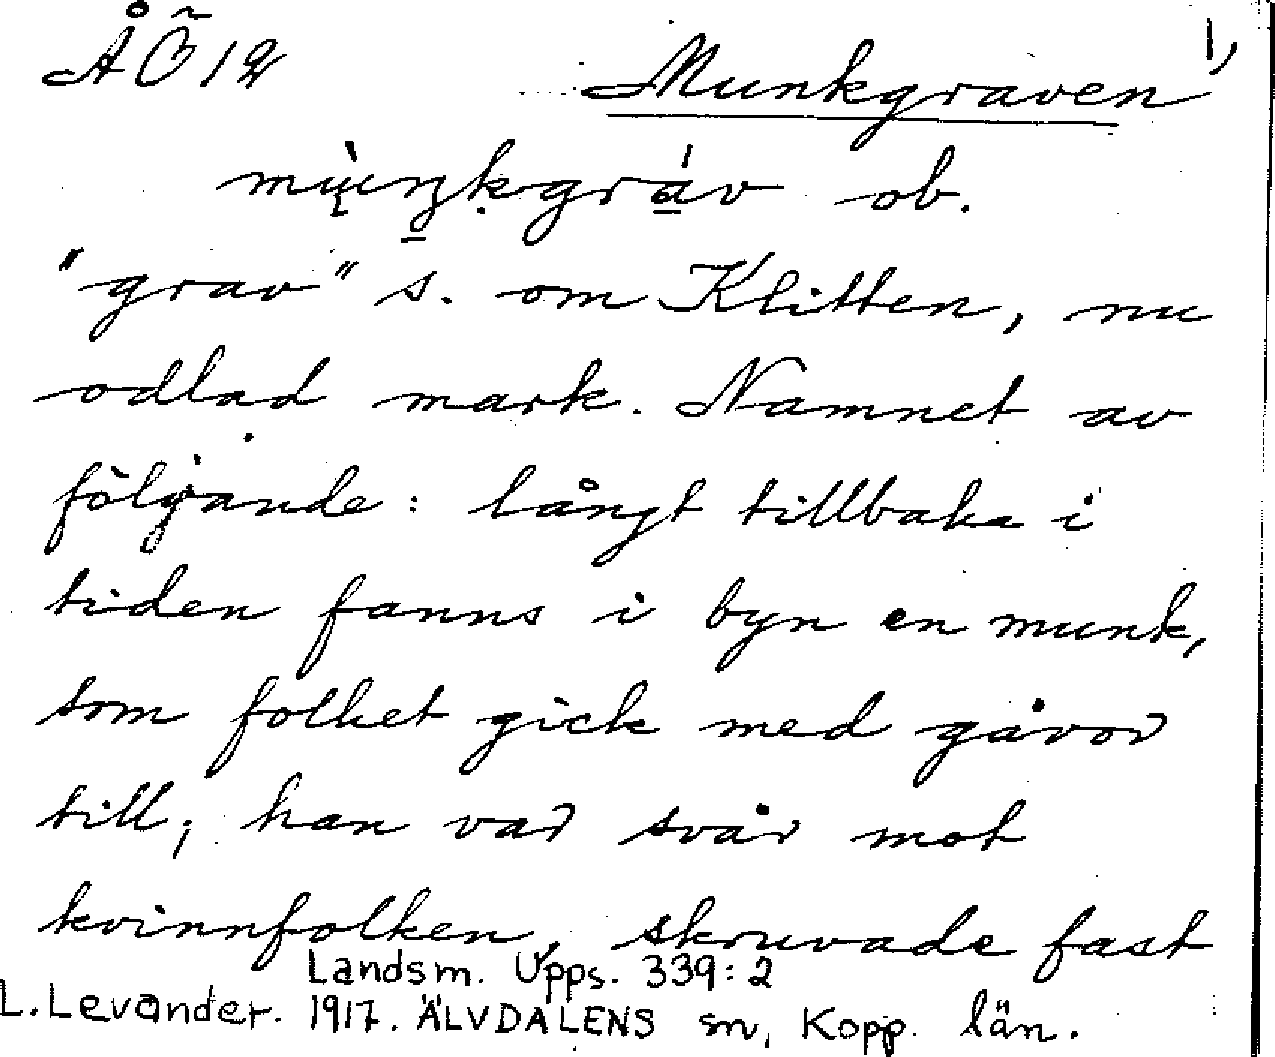 Munkgraven 1,
ob.
"grav" s. om Klitten, nu
odlad mark. Namnet av
följande: långt tillbaka i
tiden fanns i byn en munk,
som folket gick med gåvor
till; han var svår mot
kvinnfolken, skruvade fast
Landsm. Upps. 339:2
L. Levander. 1917. ÄLVDALENS sn, Kopp. län.